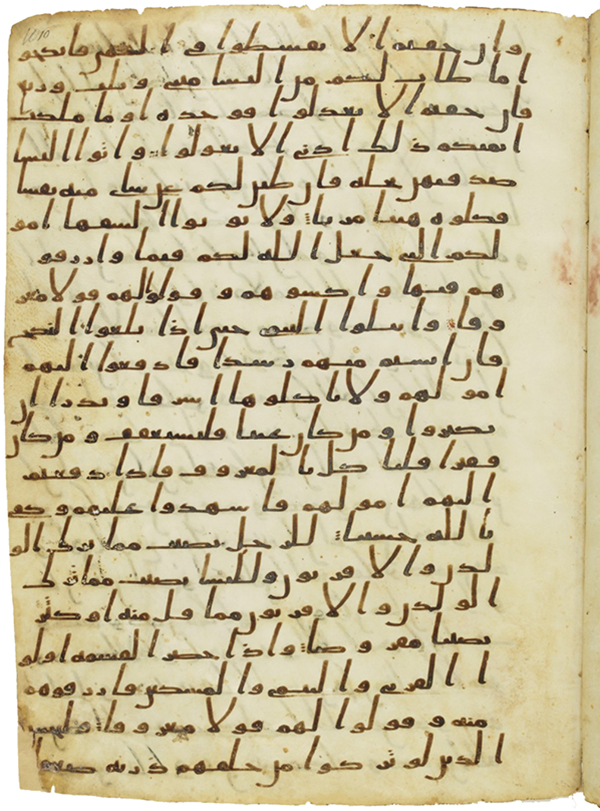 وان خفتم الا تقسطوا في اليتمى فانكحو
ا ما طاب لكم من النسا مثنى وثلث وربع
فان خفتم الا تعدلوا فوحده او ما ملكت
ايمنكم ذلك ادنى الا تعولوا واتوا النسا
صدقتهن نحله فان طبن لكم عن شي منه نفسا
فكلوه هنيا مريا ولا توتوا السفها امو
لكم التي جعل الله لكم قيما وارزقو
هم فيها واكسوهم وقولوا لهم قولا معر
وفا وابتلوا اليتمى حتى اذا بلغوا النكح
فان انستم منهم رشدا فادفعوا اليهم
امولهم ولا تاكلوها اسرفا وبدرا ان
يكبروا ومن كان غنيا فليستعفف ومن كان
فقيرا فلياكل بالمعروف فاذا دفعتم
اليهم امولهم فاشهدوا عليهم وكفى
بالله حسيبا للرجل نصيب مما ترك الو
لدن والاقربون وللنسا نصيب مما ترك
الولدن والاقربون مما قل منه او كثر
نصيبا مفروضا واذا حضر القسمه اولو
ا القربى واليتمى والمسكين فارزقوهم
منه وقولوا لهم قولا معروفا وليخش
الذين لو تركوا من خلفهم ذريه ضعفا